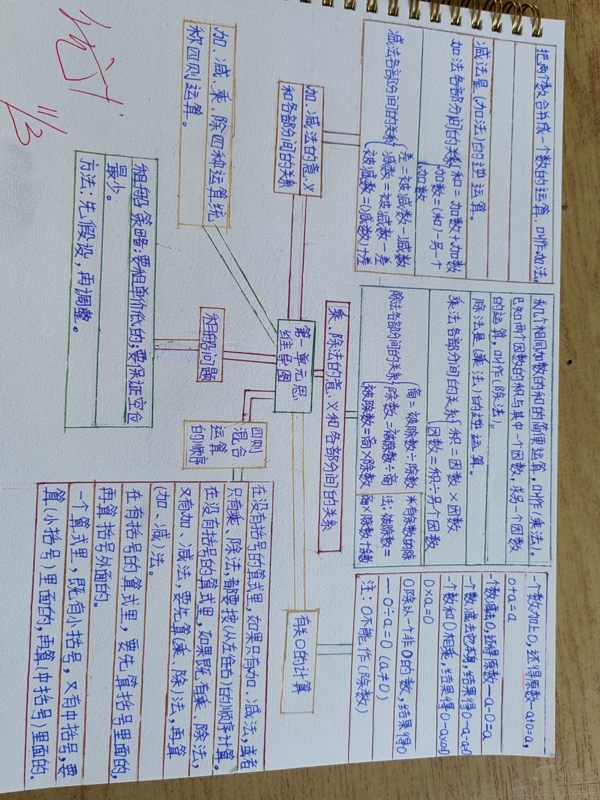 把两个数合并成一个数的运算,叫作加法。
减法是(加法)的逆运算。
加法各部分间的关系{和=加数+加数
加数=(和)-另一个
加数
减法各部分间的关系{差=被减数-减数
减数=被减数-差
被减数=(减数)+差
加、减法的意义
和各部分间的关系
加、减、乘、除四种运算统
称四则运算。
租船策略:要租单价低的;要保证空位
最少。
方法:先假设,再调整。
租船问题
第一单元思
维导图
乘、除法的意义和各部分间的关系
求几个相同加数的和的简便运算,叫作(乘法)。
已知两个因数的积与其中一个因数,求另一个因数
的运算,叫作(除法)。
除法是(乘法)的逆运算。
乘法各部分间的关系{积=因数×因数
因数=积÷另一个因数
除法各部分间的关系{商=被除数÷除数
除数=被除数÷商
被除数=商×除数
有余数的除
法:被除数=
商×除数+余数
四则
混合
运算
的顺序
在没有括号的算式里,如果只有加、减法,或者
只有乘、除法,都要按(从左往右)的顺序计算。
在没有括号的算式里,如果既有乘、除法,
又有加、减法,要先算(乘、除)法,再算
(加、减)法。
在有括号的算式里,要先算括号里面的,
再算括号外面的。
一个算式里,既有小括号,又有中括号,要
算(小括号)里面的,再算中括号里面的.
有关0的计算
一个数加上0,还得原数—a+0=a,
0+a=a
一个数减去0,还得原数—a-0=a
一个数减去它本身,结果得0-a-a=0
一个数和0相乘,结果得0-a×0=0
0×a=0
0除以一个非0的数,结果得0
—0÷a=0(a≠0)
注:0不能作(除数)
11/3